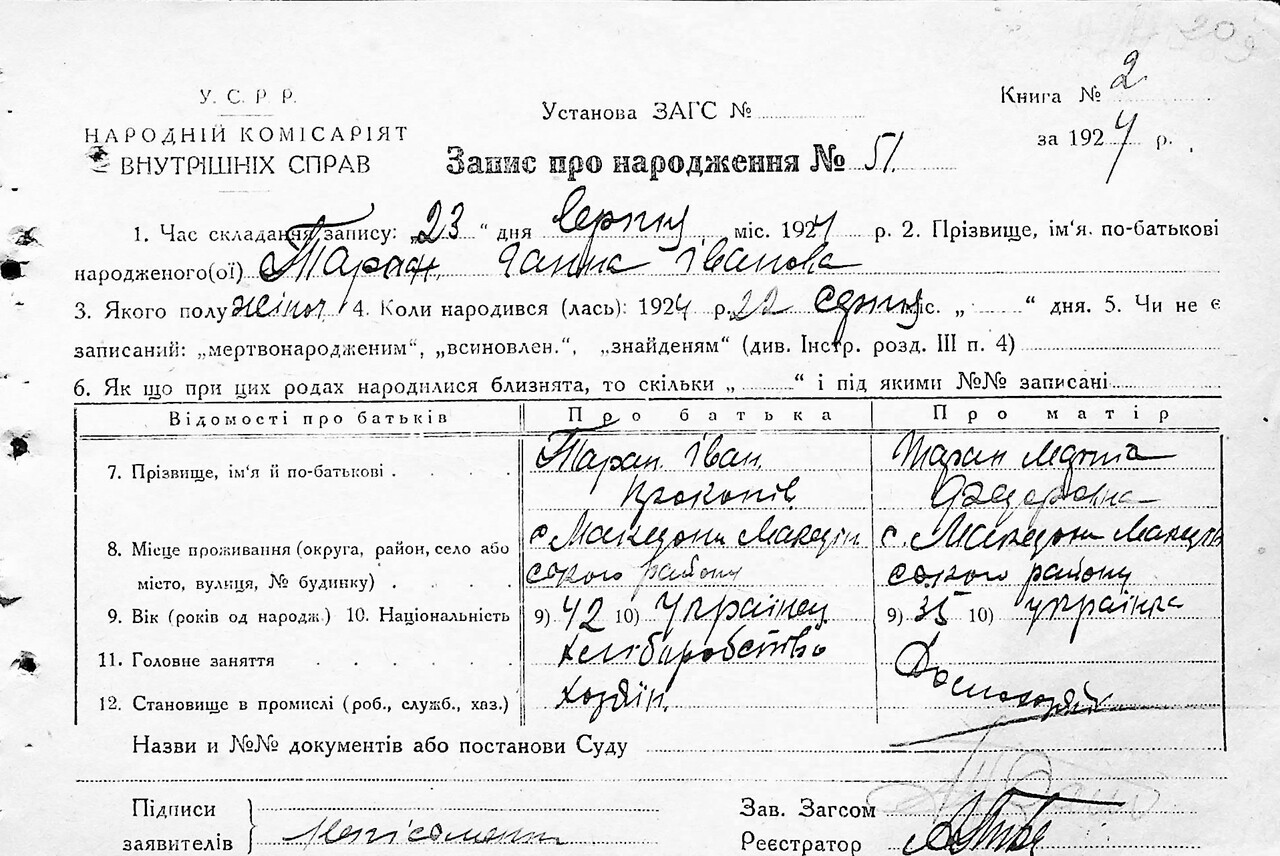 209
У. С. Р. Р.
НАРОДНІЙ КОМІСАРІЯТ
ВНУТРІШНІХ СПРАВ
Установа ЗАГС №
Книга № 2
за 1924 р.
Запис про народження № 51.
1. Час складання запису: „23“ дня Серпня міс. 1924 р. 2. Прізвище, ім'я, по-батькові
народженого(ої) Таран Ганна Іванова
3. Якого полу жіноч 4. Коли народився (лась): 1924 р. 22 Серпня міс. „ “ дня. 5. Чи не є
записаний: „мертвонародженим“, „всиновлен.“, „знайденям“ (див. Інстр. розд. III п. 4)
6. Як що при цих родах народилися близнята, то скільки „ “ і під якими №№ записані
Відомості про батьків Про батька Про матір
7. Прізвище, ім'я й по-батькові Таран Іван Таран
Прокопів Федоровна
8. Місце проживання (округа, район, село або с. Македони Македон с. Македони Македон
місто, вулиця, № будинку) ського району ського району
9. Вік (років од народж.) 10. Національність 9) 42 10) Українец 9) 35 10) українка
11. Головне заняття хліборобство
12. Становище в промислі (роб., служб., хаз.) хозяїн. Домохозяйк
Назви и №№ документів або постанови Суду
Підписи
заявителів
Зав. Загсом
Реєстратор